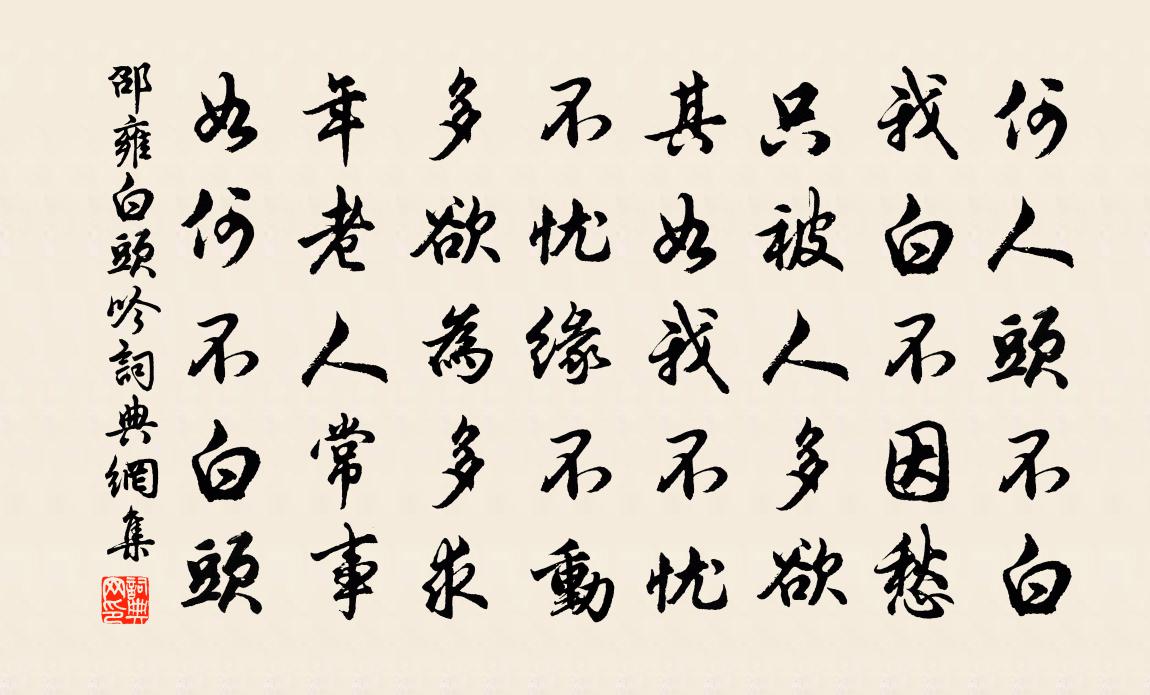 何人頭不白
我白不因愁
只被人多欲
其如我不忧
不忧緣不動
多欲為多求
年老人常事
如何不白頭
邵雍白頭吟詞典網集
詞典网印